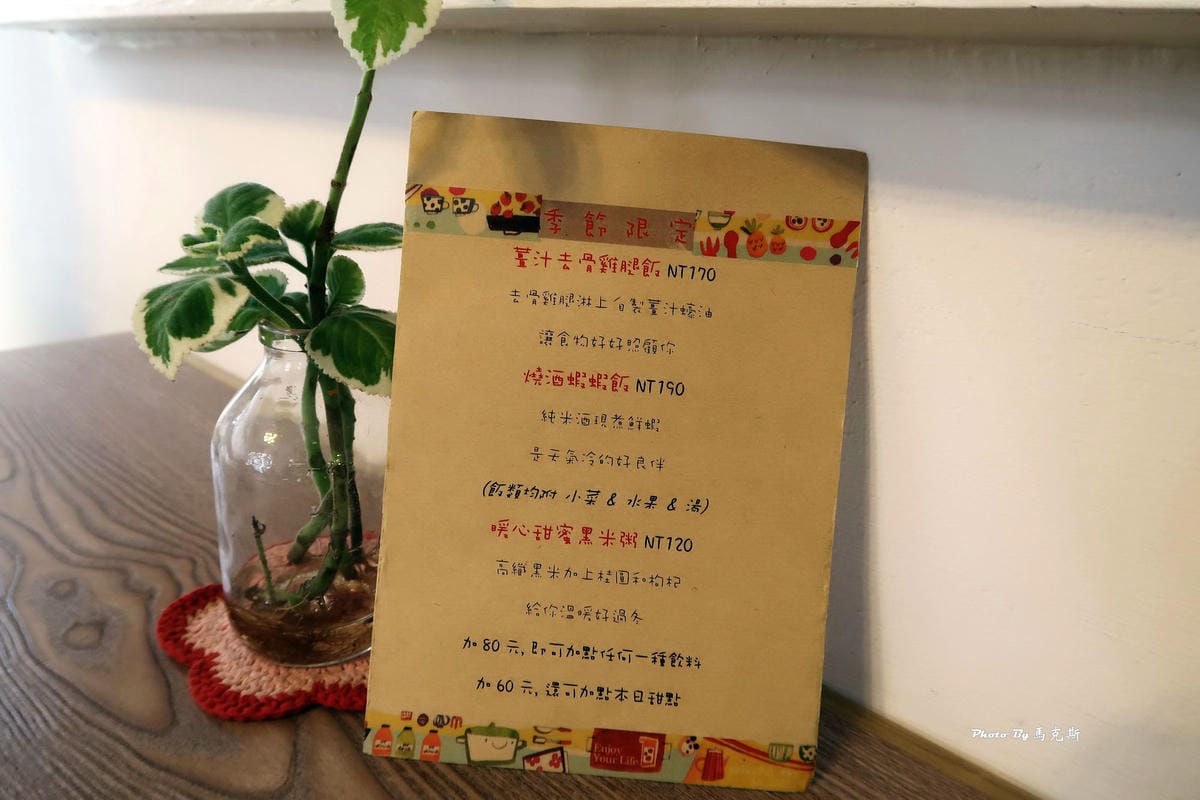 季節限定
薑汁去骨雞腿飯 NT170
去骨雞腿淋上自製薑汁蠔油
讓食物好好照顧你
燒酒蝦蝦飯 NT190
純米酒現煮鮮蝦
是天氣冷的好良伴
(飯類均附 小菜 & 水果 & 湯)
暖心甜蜜黑米粥 NT120
高纖黑米加上桂圓和枸杞
給你溫暖好過冬
加 80 元, 即可加點任何一種飲料
加 60 元, 還可加點本日甜點
Enjoy
Your Life
Photo By 馬克斯